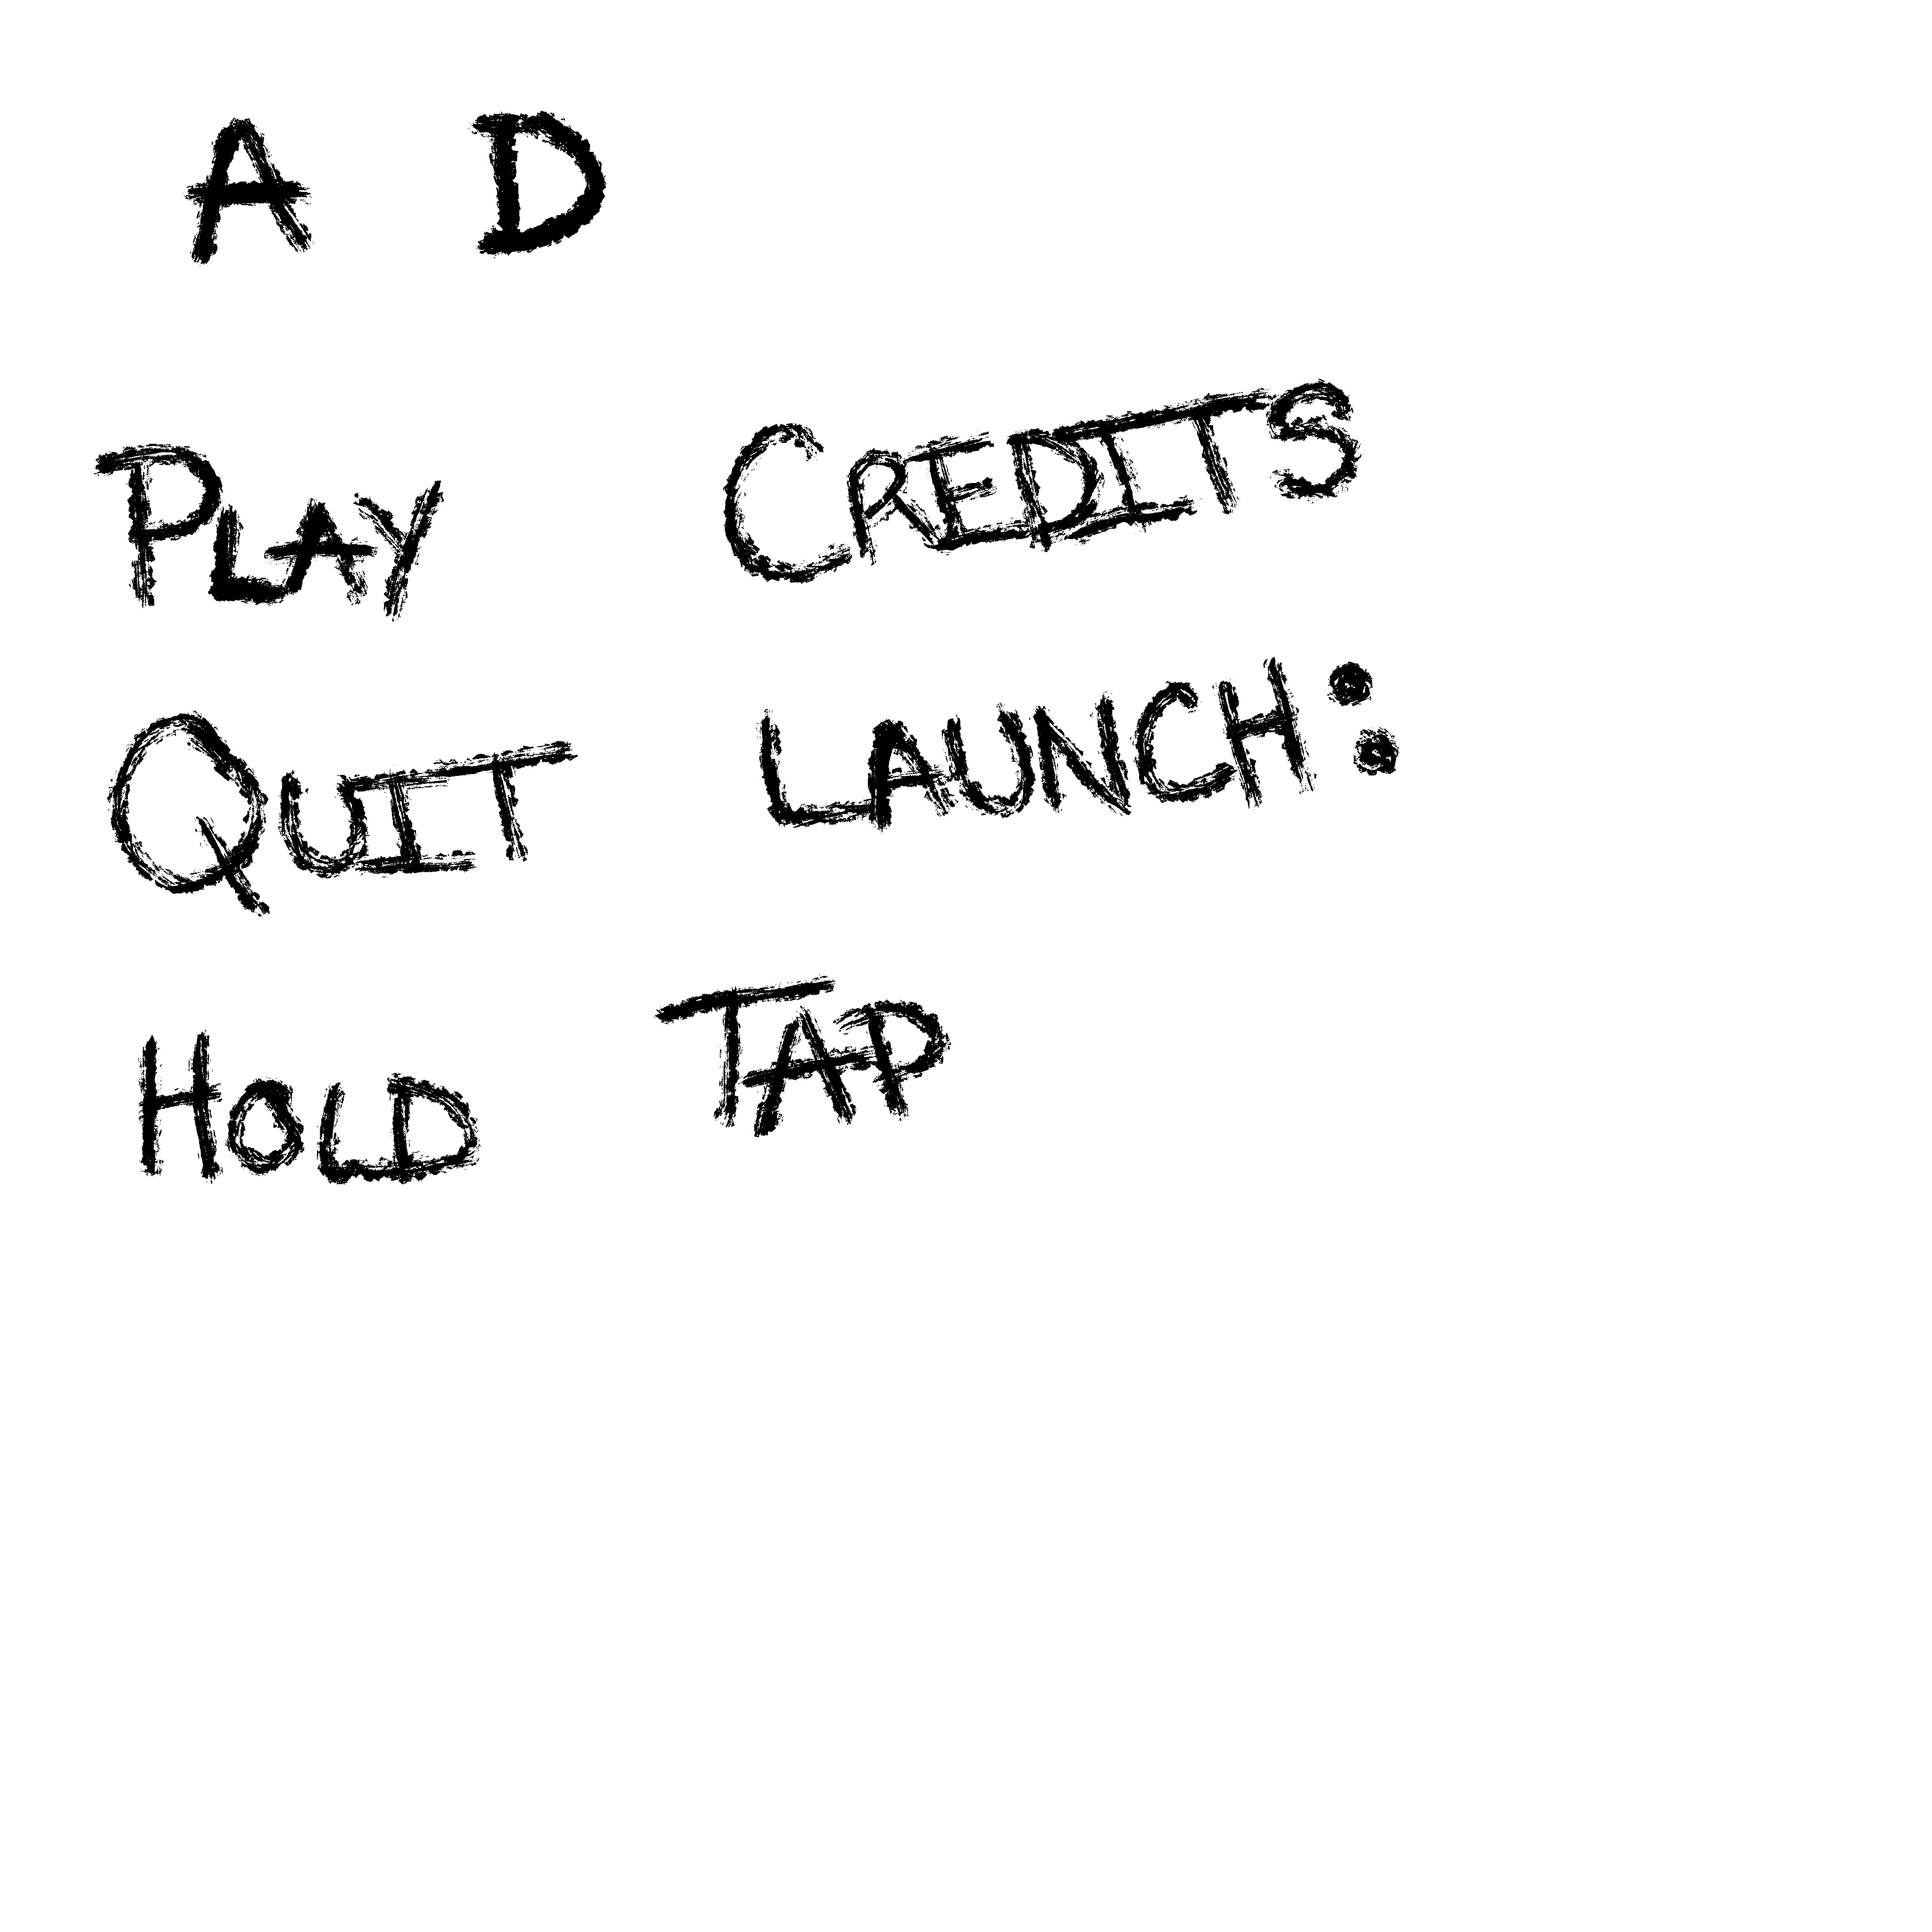 A D
PLAY CREDITS
QUIT LAUNCH:
HOLD TAP